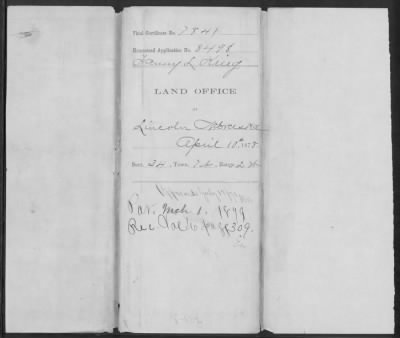 Final Certificate No. 7841
Homestead Application No. 8498
Fanny L Krieg
LAND OFFICE
AT
Lincoln Nebraska
April 10th 1878
Sect. 34, Town. 7 N, Range 2 W
Approved July
Pat. Mch 1. 1879
Rec. Vol 6 page 309.